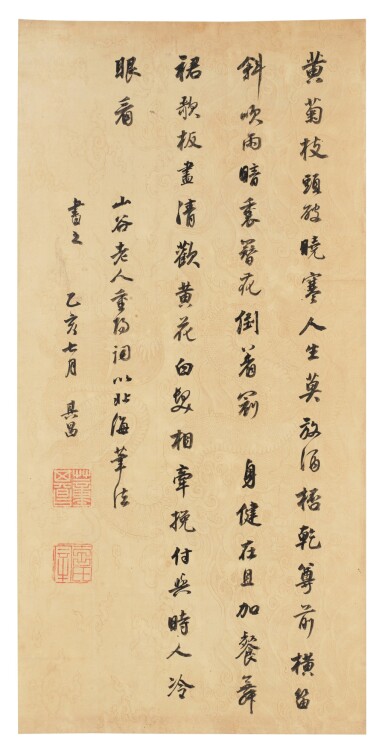 黄菊枝頭破曉寒人生莫放酒桮乾尊前橫笛
斜吹雨暗裏簪花倒着冠 身健在且加餐舞
裙歌板盡清歡黄花白髮相牽挽付與時人冷
眼看
山谷老人重陽詞以北海筆法
書之 乙亥七月 其昌